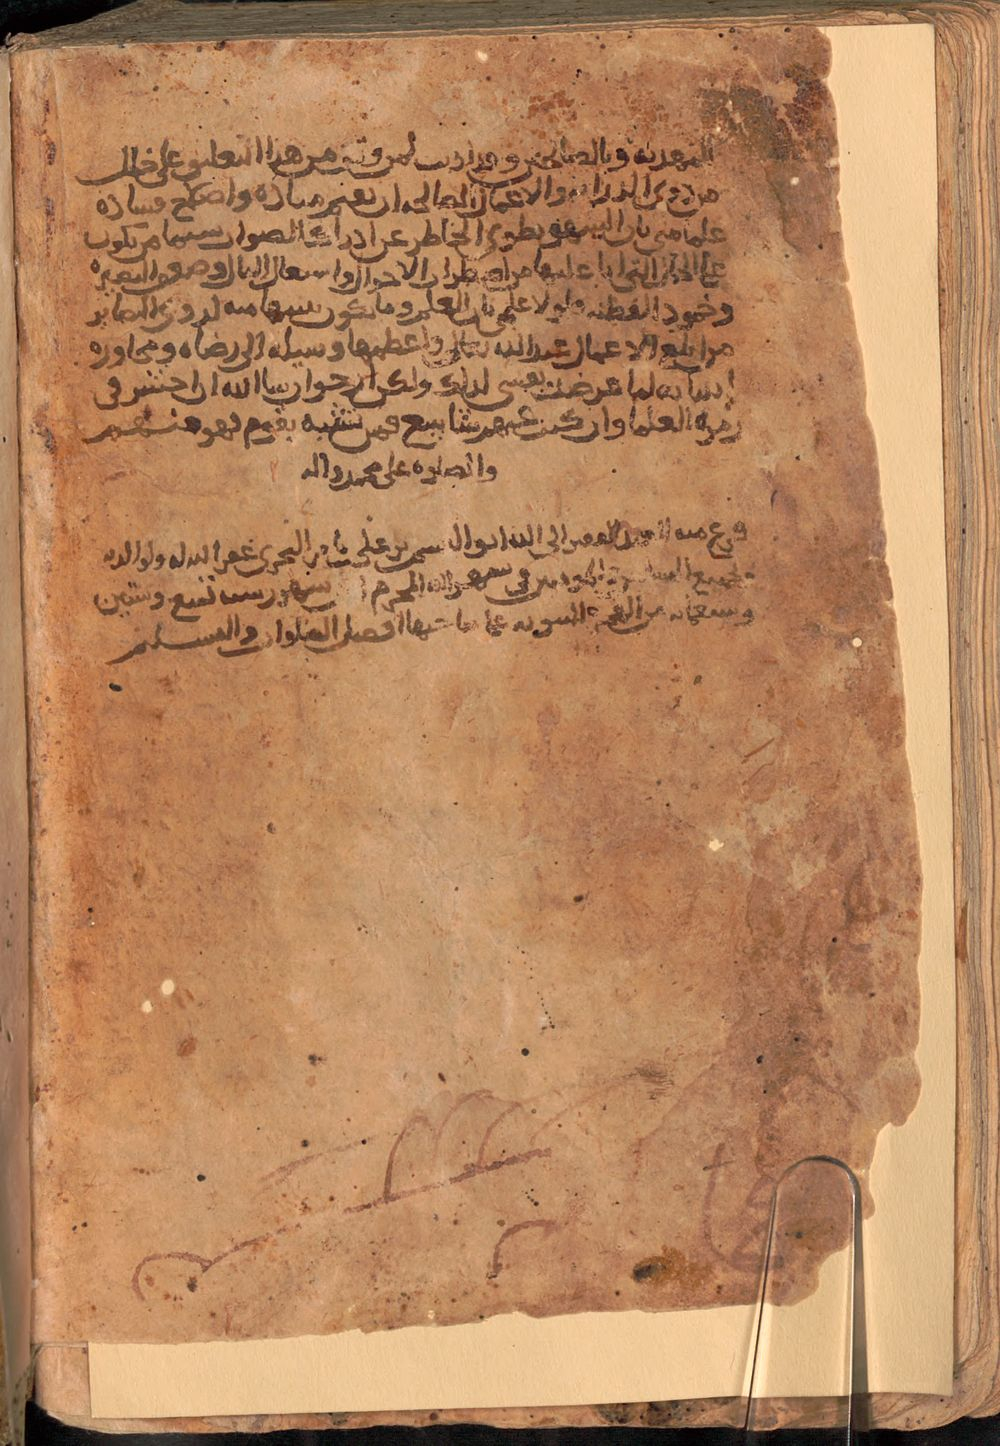 المهديه وبالصالحين وقد اذنت لمن وقف من هذا التعليق على خلل
من ذوي الدرايه والاعمال الصالحه ان يقيم مناده واصلاح فساده
علما مني بان السهو يطوي الخاطر عن ادراك الصواب سيما من يكون
على الحال التي انا عليها من اضطراب الاحوال واشتغال البال وضعف البصيره
وخمود الفطنه ولولا علمي بان العلم وما يكون سببا منه لدوي البصاير
من ابلغ الاعمال عند الله تعالى واعظمها وسيله الى رضاه ومجاوره
انبيايه لما عرضت نفسي لذلك ولكن ارجوا ان شا الله ان احشر في
زمره العلما وان كنت غيرهم فمن تشبه بقوم فهو منهم
والصلوه على محمد واله
فرغ منه العبد الفقير الى الله بن علي غفر الله له ولوالديه
ولجميع المسلمين في شهر الله المحرم شهور سنه تسع وستين
وسبعمايه من الهجره النبويه على صاحبها افضل الصلوات والتسليم